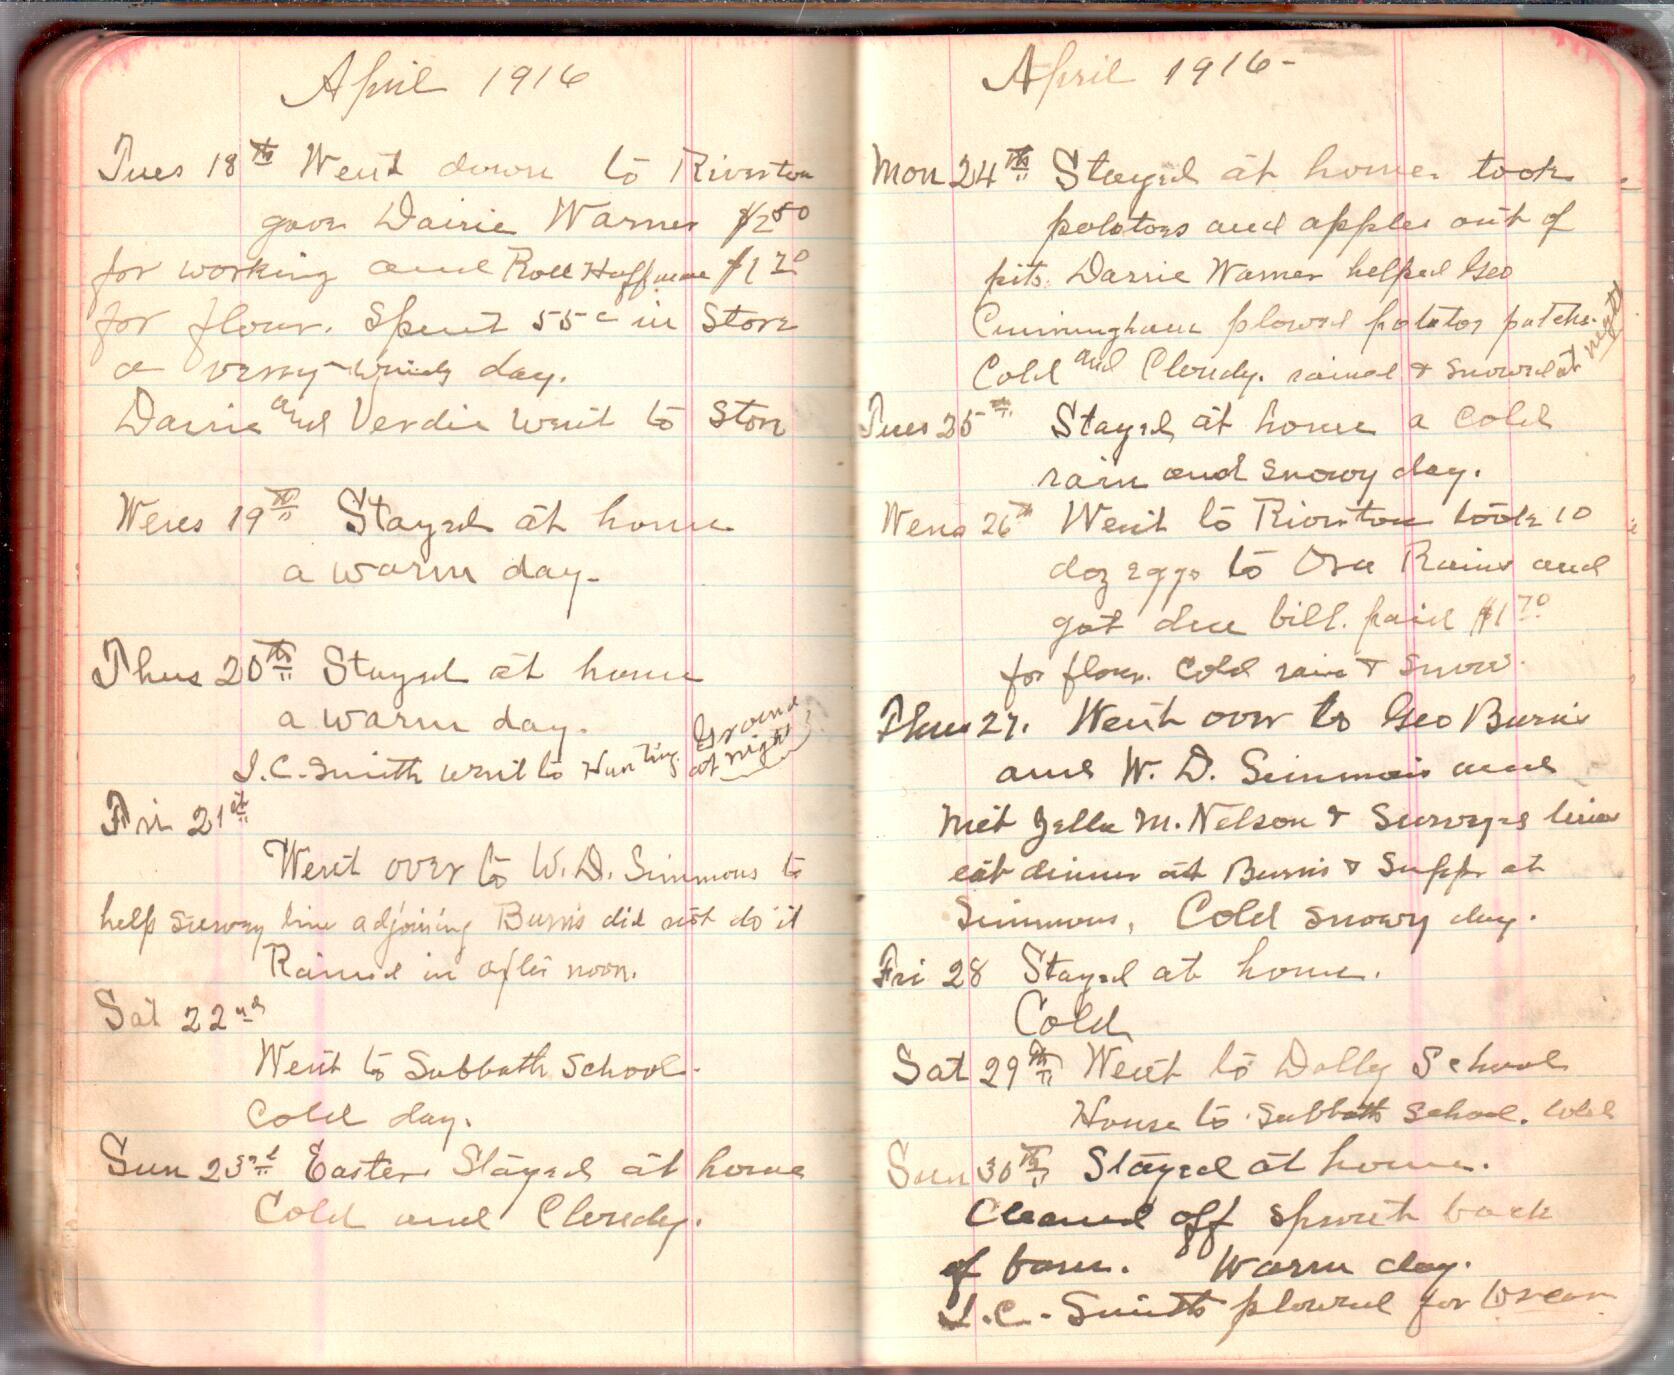 April 1916
Tues 18th Went down to Riverton
gave Dairie Warner $2 50
for working and Roll Huffman $1 70
for flour. Spent 55c in Store
a verry windy day.
Dairie and Verdie went to Store
Wens 19th Stayed at home
a warm day.
Thus 20th Stayed at home
a warm day.
I.C. Smith went to Hunting Ground
at night
Fri 21st
Went over to W.D. Simmons to
help survey line adjoining Burns did not do it
Rained in after noon.
Sat 22nd
Went to Sabbath School.
Cold day.
Sun 23rd Easter Stayed at home
Cold and Cloudy.
April 1916-
Mon 24th Stayed at home. took
potatoes and apples out of
pits. Darrie Warner helped Geo
Cunningham plowed potatoe patch.
Cold and Cloudy. rained & snowed at night
Tues 25th Stayed at home a cold
rain and snowy day.
Wens 26th Went to Riverton took 10
doz eggs to Ora Rains and
got due bill. paid $1 70
for flour. Cold rain & snow.
Thus 27. Went over to Geo Burns
and W. D. Simmons and
met M. Nelson & Surveyed line
eat dinner at Burns & Supper at
Simmons, Cold snowy day.
Fri 28 Stayed at home.
Cold
Sat 29th Went to Dolly School
House to Sabbath School. Cold
Sun 30th Stayed at home.
Cleaned off back
of barn. Warm day.
I.C. Smith plowed for